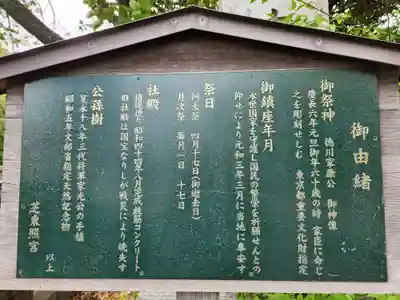 御由緒
御祭神 徳川家康公 御神像
慶長六年元旦御年六十歳の時 家臣に命じ
之を彫刻せしむ 東京都重要文化財指定
御鎮座年月
永世国家を守護し国民の繁栄を祈願せんとの
仰せにより元和三年三月に当地に奉安す
祭日
例大祭 四月十七日(御命日)
月次祭 毎月一日 十七日
社殿
昭和四十四年八月完成鉄筋コンクリート
旧社殿は国宝なりしが戦災により焼失す
公孫樹
寛永十八年三代将軍家光公の手植
昭和五年文部省指定天然記念物
以上
芝東照宮